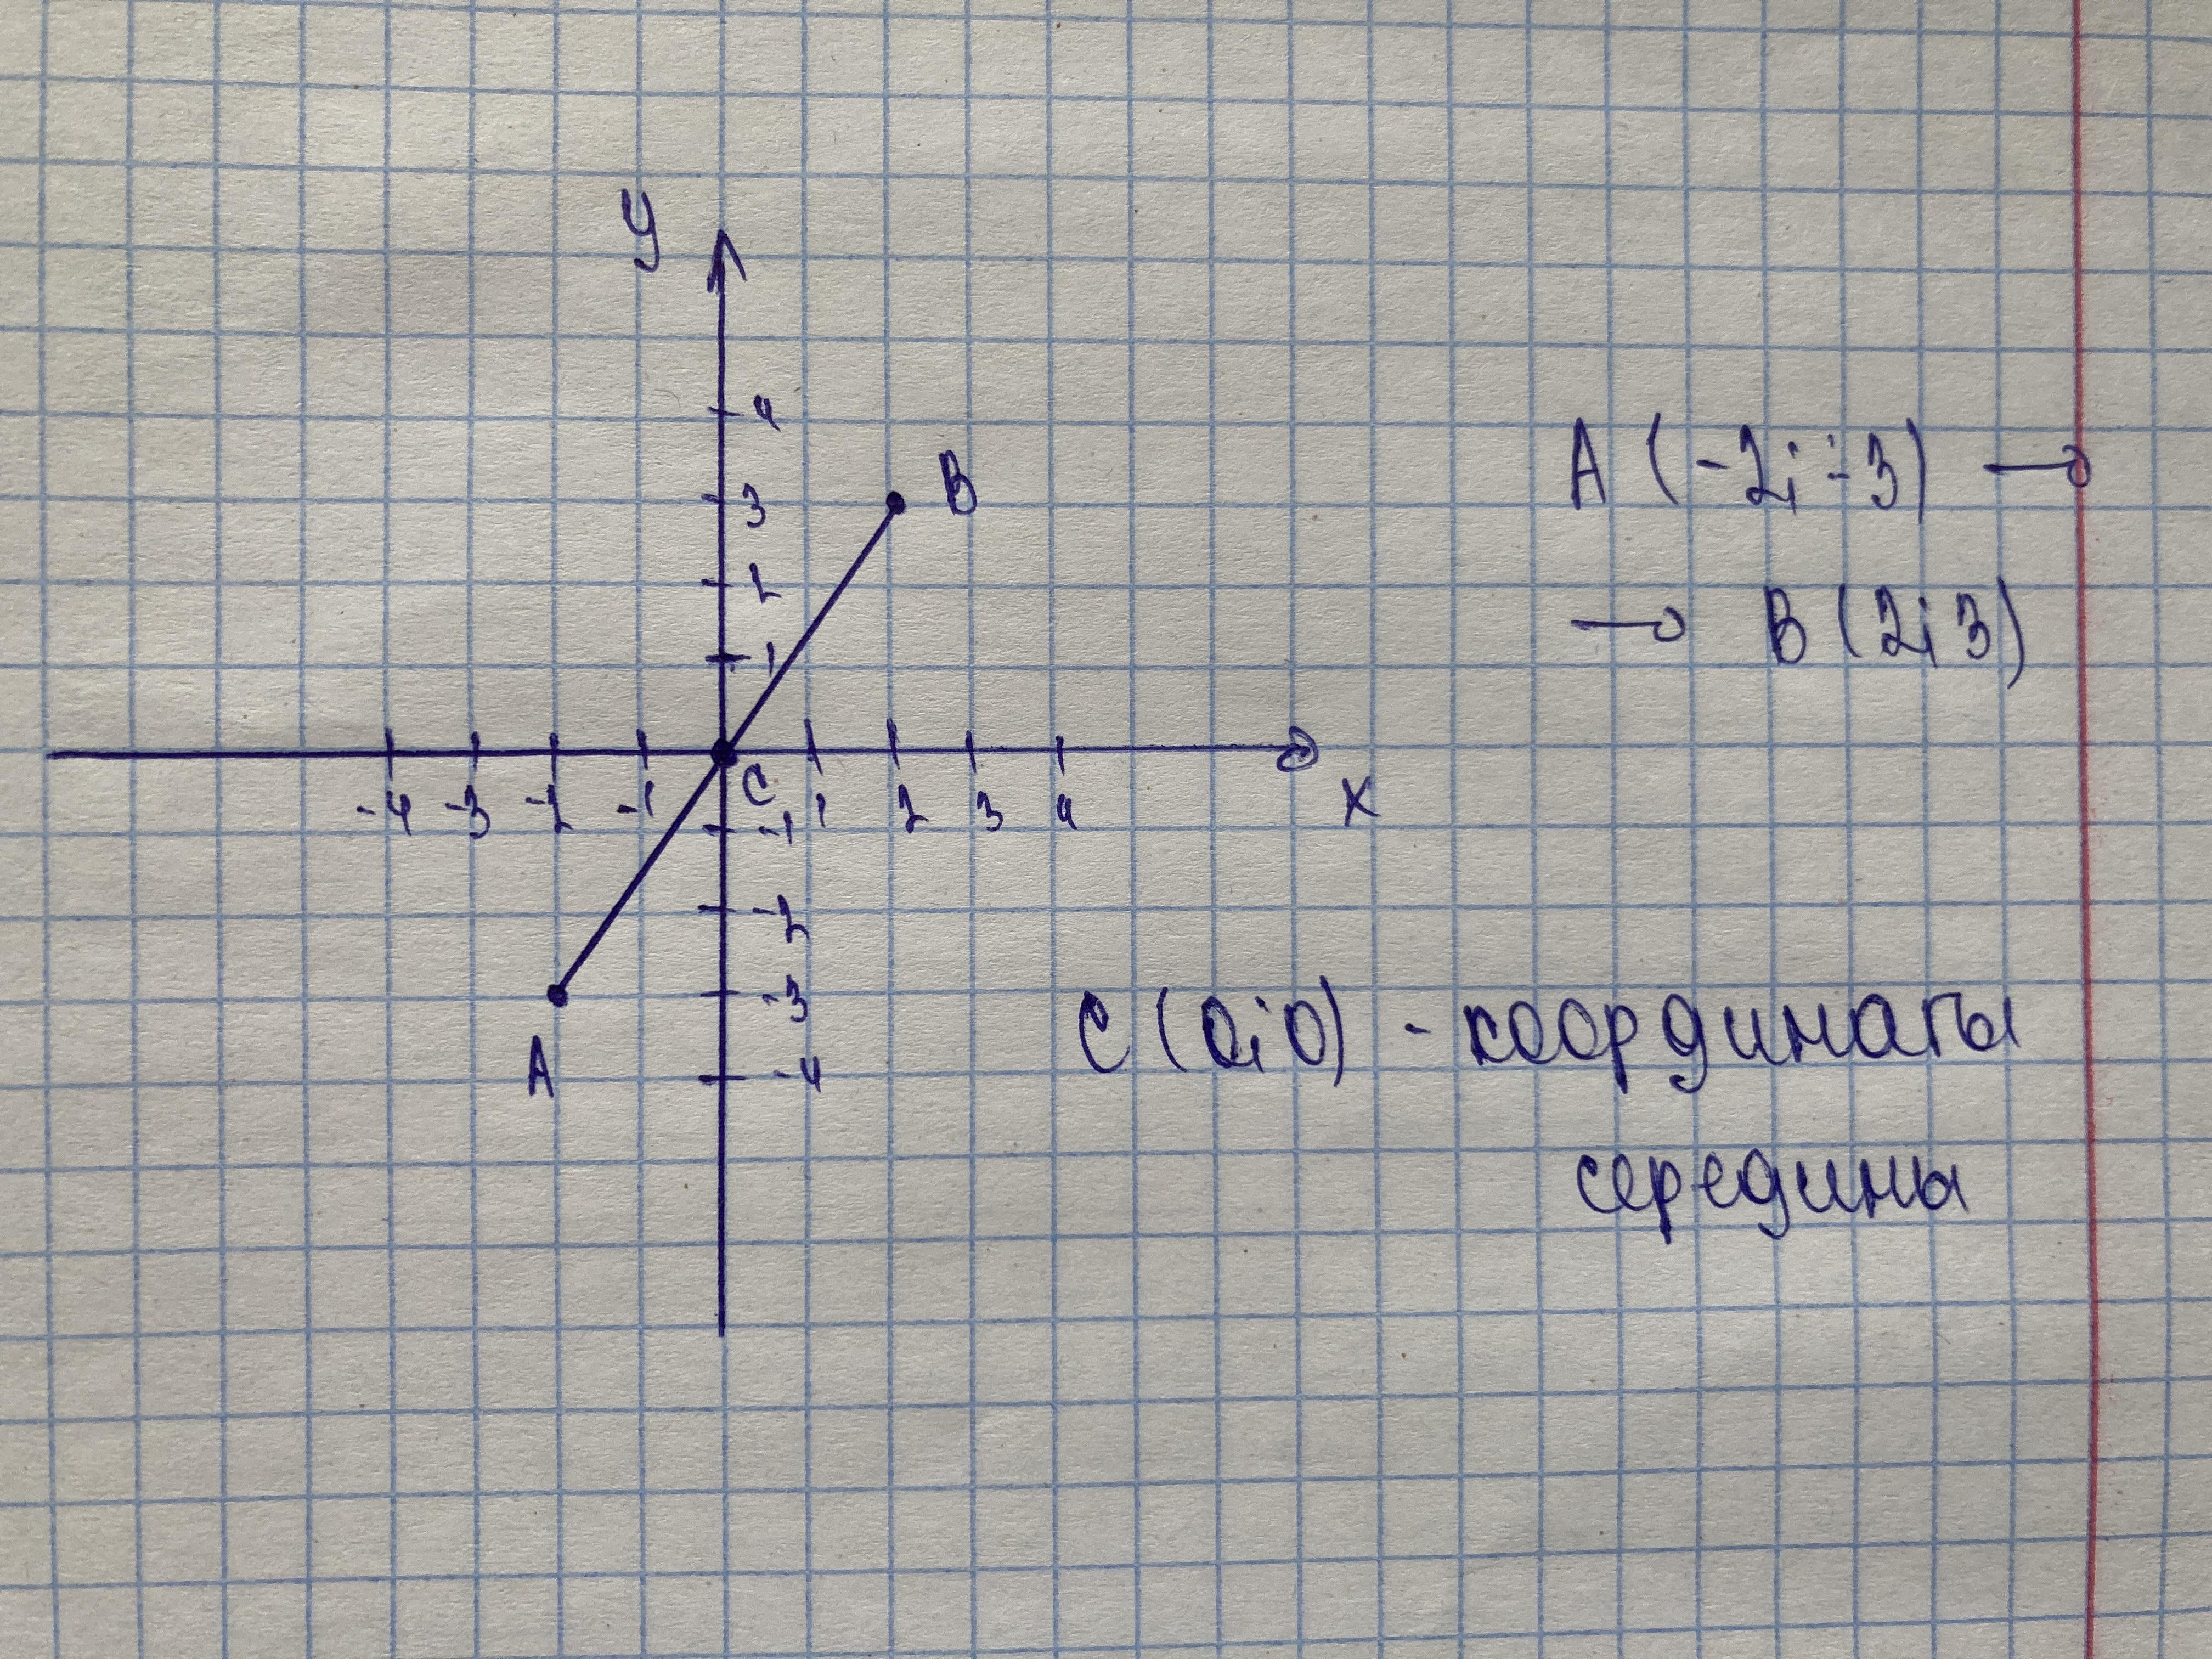 y
4
B
3
2
1
-4 -3 -2 -1 C 1 2 3 4 x
-1
-2
-3
A
-4
A (-2; -3) →
→ B (2; 3)
C (0; 0) - координаты
середины